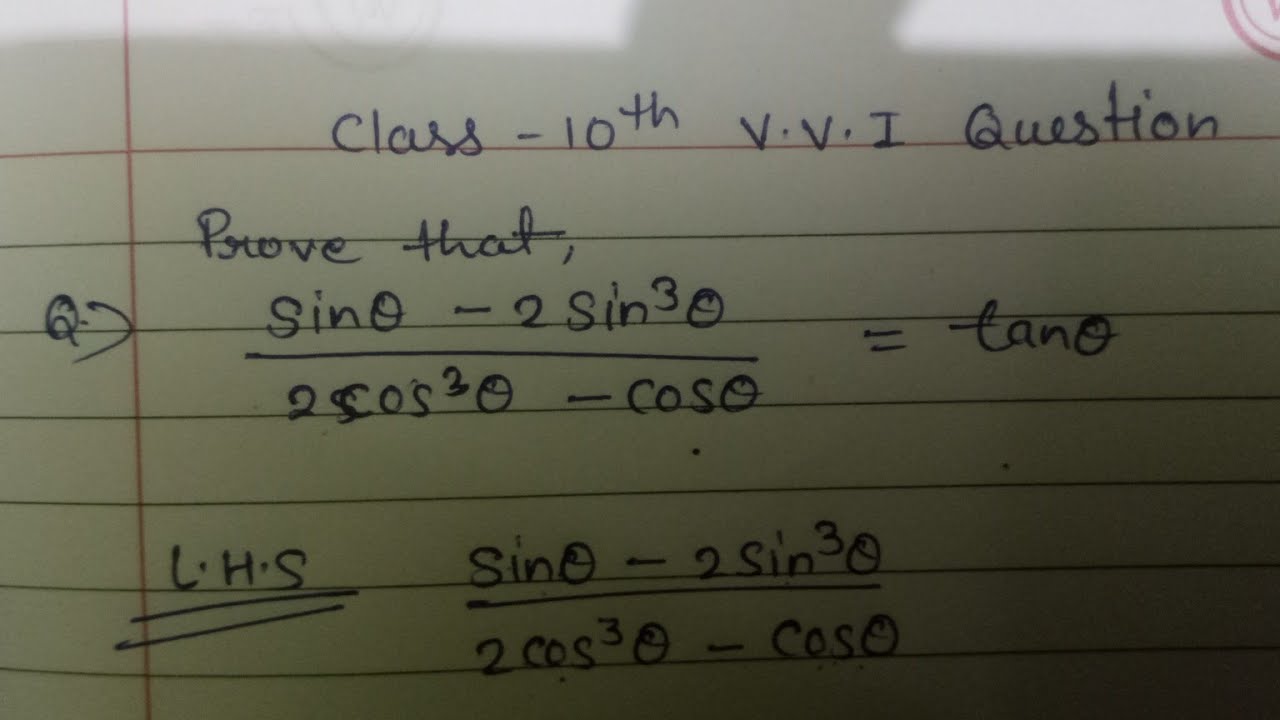 Class - 10th V.V.I Question
Prove that,
Q.) sinθ - 2 sin³θ / 2cos³θ - cosθ = tanθ
L.H.S sinθ - 2sin³θ / 2cos³θ - cosθ